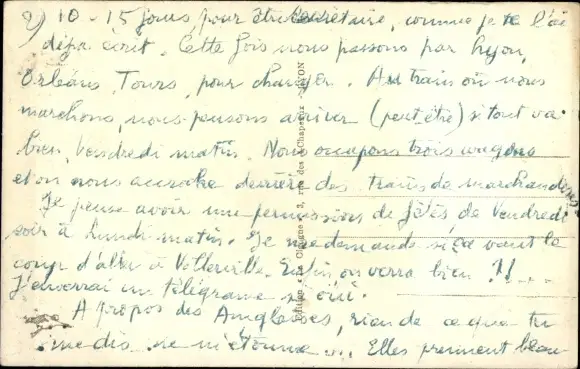 2) 10-15 jours pour être secrétaire, comme je te l'ai
déjà écrit. Cette fois nous passons par Lyon,
Orléans, Tours, pour changer. Au train où nous
marchons, nous pensons arriver (peut être) si tout va
bien, Vendredi matin. Nous occupons trois wagons
et on nous accroche derrière des trains de marchandises
Je pense avoir une permission de fêtes de Vendredi
soir à Lundi matin. Je me demande si ça vaut le
coup d'aller à Villerville. Enfin on verra bien ?!...
J'enverrai un télégramme si oui.
A propos des Anglaises, rien de ce que tu
me dis ne m'étonne ... Elles prennent beau